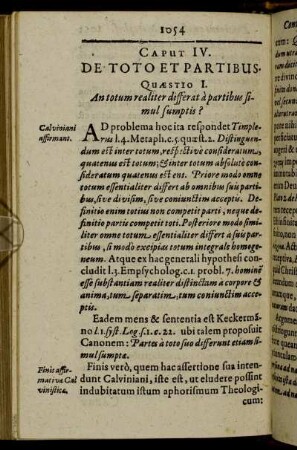 1054
CAPUT IV.
DE TOTO ET PARTIBUS.
QUÆSTIO I.
An totum realiter differat à partibus si-
mul sumptis?
Calviniani
affirmant.
AD problema hoc ita respondet Timple-
rus l.4. Metaph.c.5.quæst.2. Distinguen-
dum est inter totum, respective consideratum,
quatenus est totum; & inter totum absolute con-
sideratum quatenus est ent. Priore modo omne
totum essentialiter differt ab omnibus suis parti-
bus, sive divisim, sive coniunctim acceptu. De-
finitio enim totius non competit parti, neque de-
finitio partis competit toti. Posteriore modo simi-
liter omne totum essentialiter differt à suis par-
tibus, si modò excipias totum integrale homoge-
neum. Atque ex hac generali hypothesi con-
cludit l.3. Empsycholog.c.1. probl.7. hominẽ
esse substantiam realiter distinctam à corpore &
anima, tum separatim, tum coniunctim acce-
ptis.
Eadem mens & sententia est Keckermã-
ni l.1.syst.Log.s.1.c.22. ubi talem proposuit
Canonem: Partes à toto suo differunt etiam si-
mul sumptæ.
Finis affir-
mativæ Cal
vinistica.
Finis verò, quem hac assertione sua inten-
dunt Calviniani, iste est, ut eludere possint
indubitatum istum aphorismum Theologi-
cum: